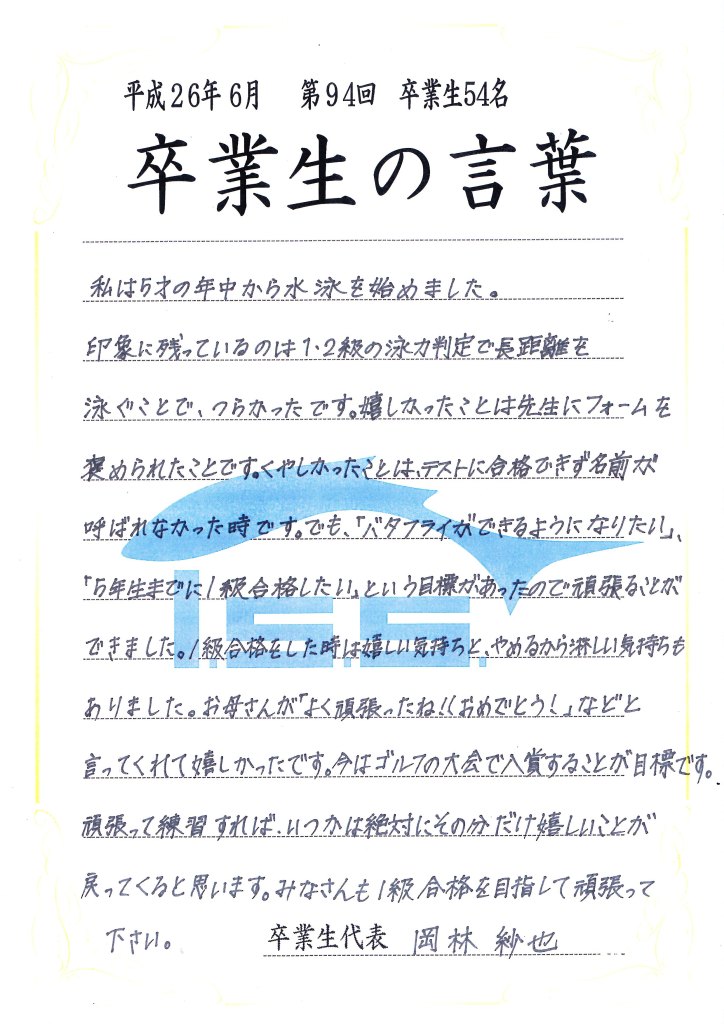 平成26年6月　第94回　卒業生54名
卒業生の言葉
私は5才の年中から水泳を始めました。
印象に残っているのは1・2級の泳力判定で長距離を
泳ぐことで、つらかったです。嬉しかったことは先生にフォームを
褒められたことです。くやしかったことは、テストに合格できず名前が
呼ばれなかった時です。でも、「バタフライができるようになりたい」、
「5年生までに1級合格したい」という目標があったので頑張ることが
できました。1級合格をした時は嬉しい気持ちと、やめるから淋しい気持ちも
ありました。お母さんが「よく頑張ったね！(おめでとう！」などと
言ってくれて嬉しかったです。今はゴルフの大会で入賞することが目標です。
頑張って練習すれば、いつかは絶対にその分だけ嬉しいことが
戻ってくると思います。みなさんも1級合格を目指して頑張って
下さい。　卒業生代表　岡林 紗也
I.S.S.